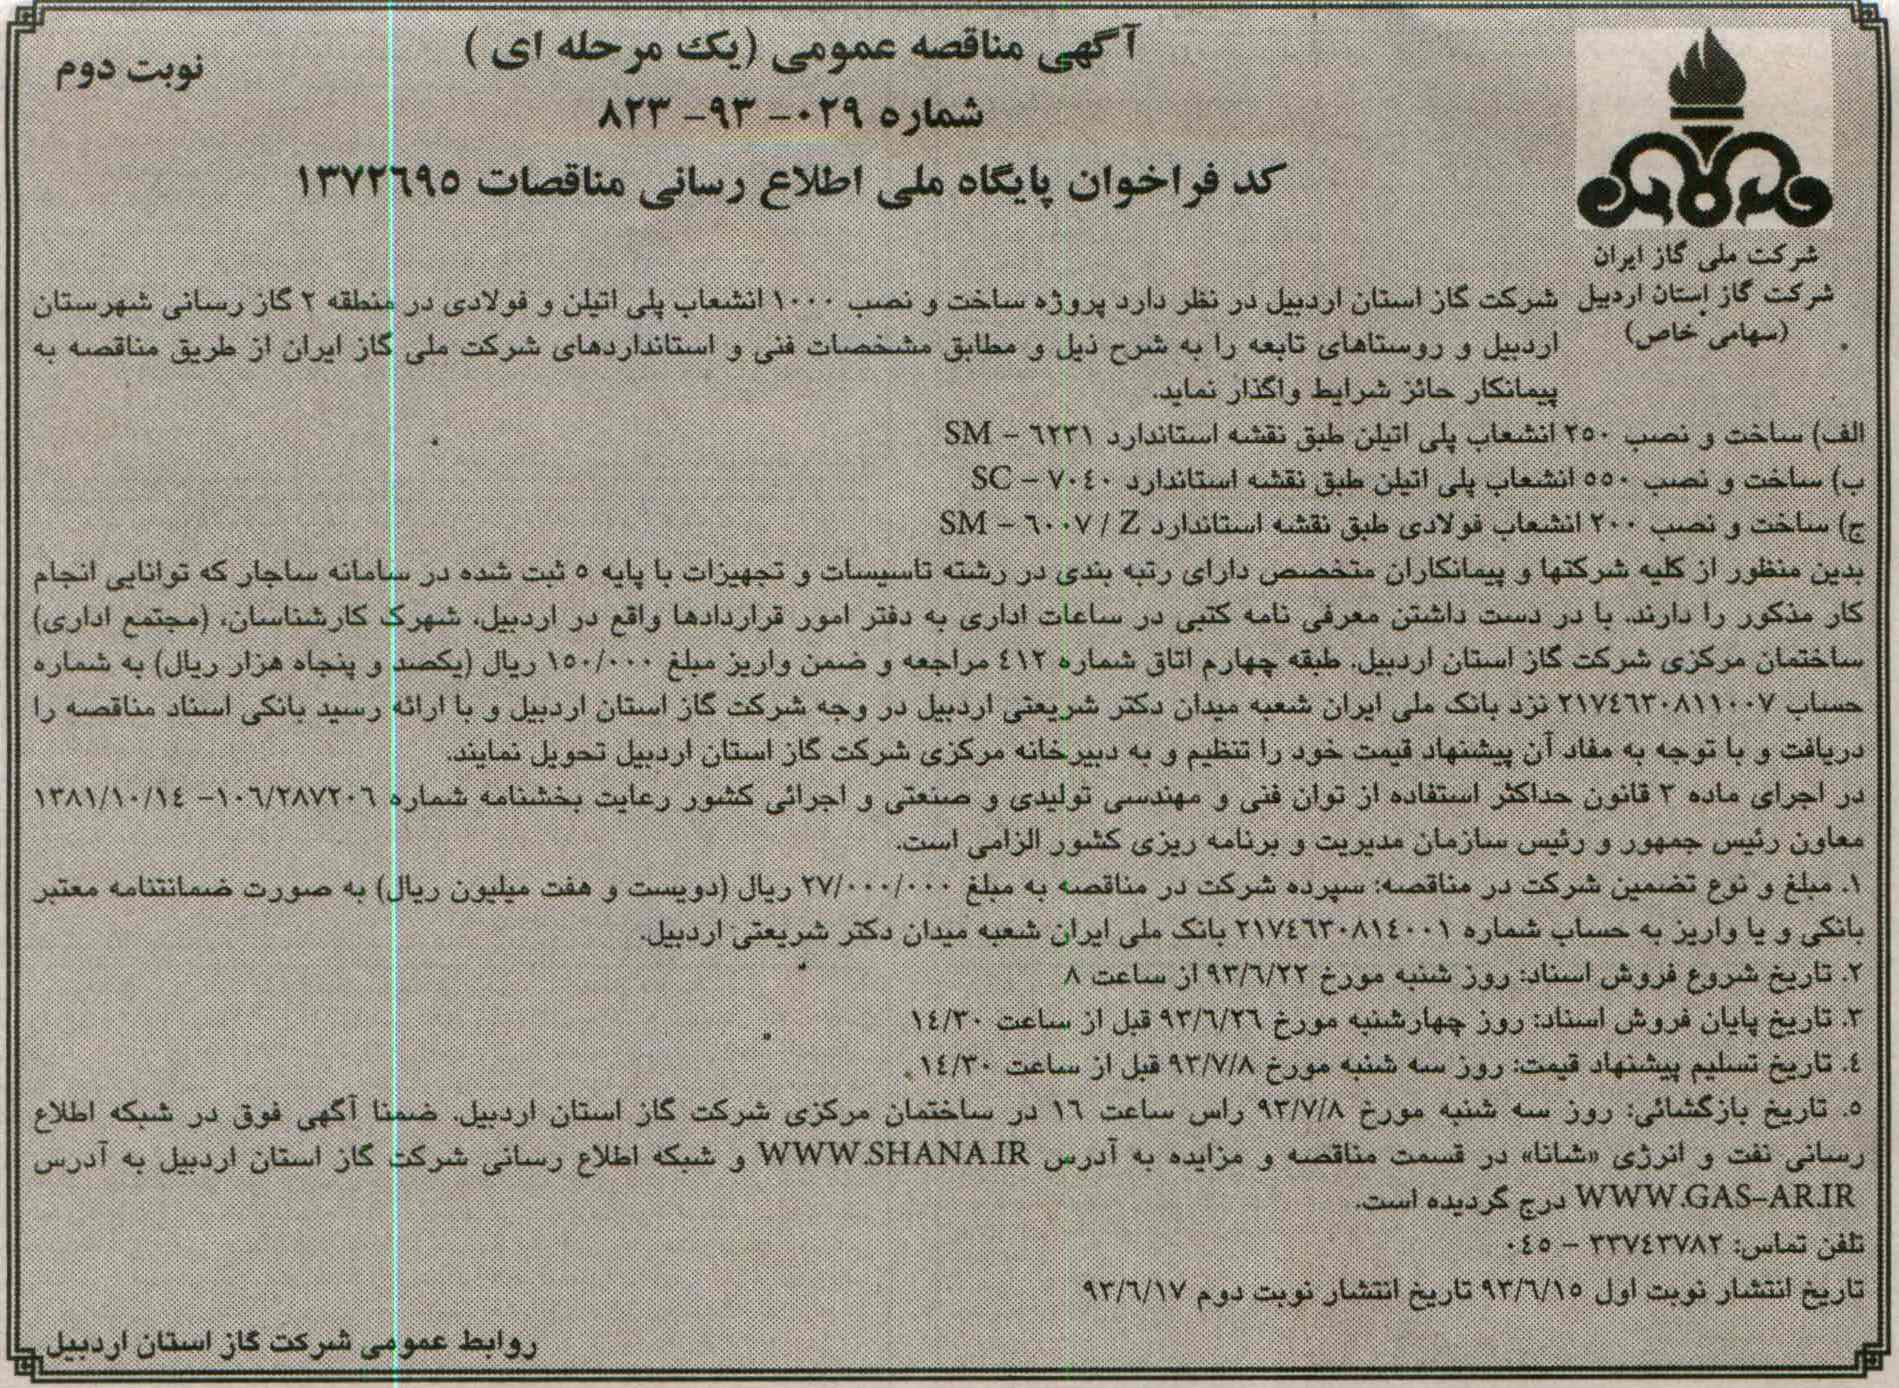 آگهی مناقصه عمومی (یک مرحله ای )
نوبت دوم
شماره ۰۲۹- ۹۳- ۸۲۳
کد فراخوان پایگاه ملی اطلاع رسانی مناقصات ۱۳۷۲۶۹۵
شرکت ملی گاز ایران
شرکت گاز استان اردبیل
(سهامی خاص)
شرکت گاز استان اردبیل در نظر دارد پروژه ساخت و نصب ۱۰۰۰ انشعاب پلی اتیلن و فولادی در منطقه ۲ گاز رسانی شهرستان
اردبیل و روستاهای تابعه را به شرح ذیل و مطابق مشخصات فنی و استانداردهای شرکت ملی گاز ایران از طریق مناقصه به
پیمانکار حائز شرایط واگذار نماید.
الف) ساخت و نصب ۲۵۰ انشعاب پلی اتیلن طبق نقشه استاندارد SM – ۶۲۳۱
ب) ساخت و نصب ۵۵۰ انشعاب پلی اتیلن طبق نقشه استاندارد SC – ۷۰۴۰
ج) ساخت و نصب ۲۰۰ انشعاب فولادی طبق نقشه استاندارد SM – ۶۰۰۷ / Z
بدین منظور از کلیه شرکتها و پیمانکاران متخصص دارای رتبه بندی در رشته تاسیسات و تجهیزات با پایه ۵ ثبت شده در سامانه ساجار که توانایی انجام
کار مذکور را دارند. با در دست داشتن معرفی نامه کتبی در ساعات اداری به دفتر امور قراردادها واقع در اردبیل، شهرک کارشناسان، (مجتمع اداری)
ساختمان مرکزی شرکت گاز استان اردبیل، طبقه چهارم اتاق شماره ۴۱۲ مراجعه و ضمن واریز مبلغ ۱۵۰/۰۰۰ ریال (یکصد و پنجاه هزار ریال) به شماره
حساب ۲۱۷۴۶۳۰۸۱۱۰۰۷ نزد بانک ملی ایران شعبه میدان دکتر شریعتی اردبیل در وجه شرکت گاز استان اردبیل و با ارائه رسید بانکی اسناد مناقصه را
دریافت و با توجه به مفاد آن پیشنهاد قیمت خود را تنظیم و به دبیرخانه مرکزی شرکت گاز استان اردبیل تحویل نمایند.
در اجرای ماده ۳ قانون حداکثر استفاده از توان فنی و مهندسی تولیدی و صنعتی و اجرائی کشور رعایت بخشنامه شماره ۱۰۶/۲۸۷۲۰۶- ۱۳۸۱/۱۰/۱۴
معاون رئیس جمهور و رئیس سازمان مدیریت و برنامه ریزی کشور الزامی است.
۱. مبلغ و نوع تضمین شرکت در مناقصه: سپرده شرکت در مناقصه به مبلغ ۲۷/۰۰۰/۰۰۰ ریال (دویست و هفت میلیون ریال) به صورت ضمانتنامه معتبر
بانکی و یا واریز به حساب شماره ۲۱۷۴۶۳۰۸۱۴۰۰۱ بانک ملی ایران شعبه میدان دکتر شریعتی اردبیل.
۲. تاریخ شروع فروش اسناد: روز شنبه مورخ ۹۳/۶/۲۲ از ساعت ۸
۳. تاریخ پایان فروش اسناد: روز چهارشنبه مورخ ۹۳/۶/۲۶ قبل از ساعت ۱۴/۳۰
۴. تاریخ تسلیم پیشنهاد قیمت: روز سه شنبه مورخ ۹۳/۷/۸ قبل از ساعت ۱۴/۳۰
۵. تاریخ بازگشائی: روز سه شنبه مورخ ۹۳/۷/۸ راس ساعت ۱۶ در ساختمان مرکزی شرکت گاز استان اردبیل. ضمنا آگهی فوق در شبکه اطلاع
رسانی نفت و انرژی «شانا» در قسمت مناقصه و مزایده به آدرس WWW.SHANA.IR و شبکه اطلاع رسانی شرکت گاز استان اردبیل به آدرس
WWW.GAS-AR.IR درج گردیده است.
تلفن تماس: ۳۳۷۴۳۷۸۲ – ۰۴۵
تاریخ انتشار نوبت اول ۹۳/۶/۱۵ تاریخ انتشار نوبت دوم ۹۳/۶/۱۷
روابط عمومی شرکت گاز استان اردبیل